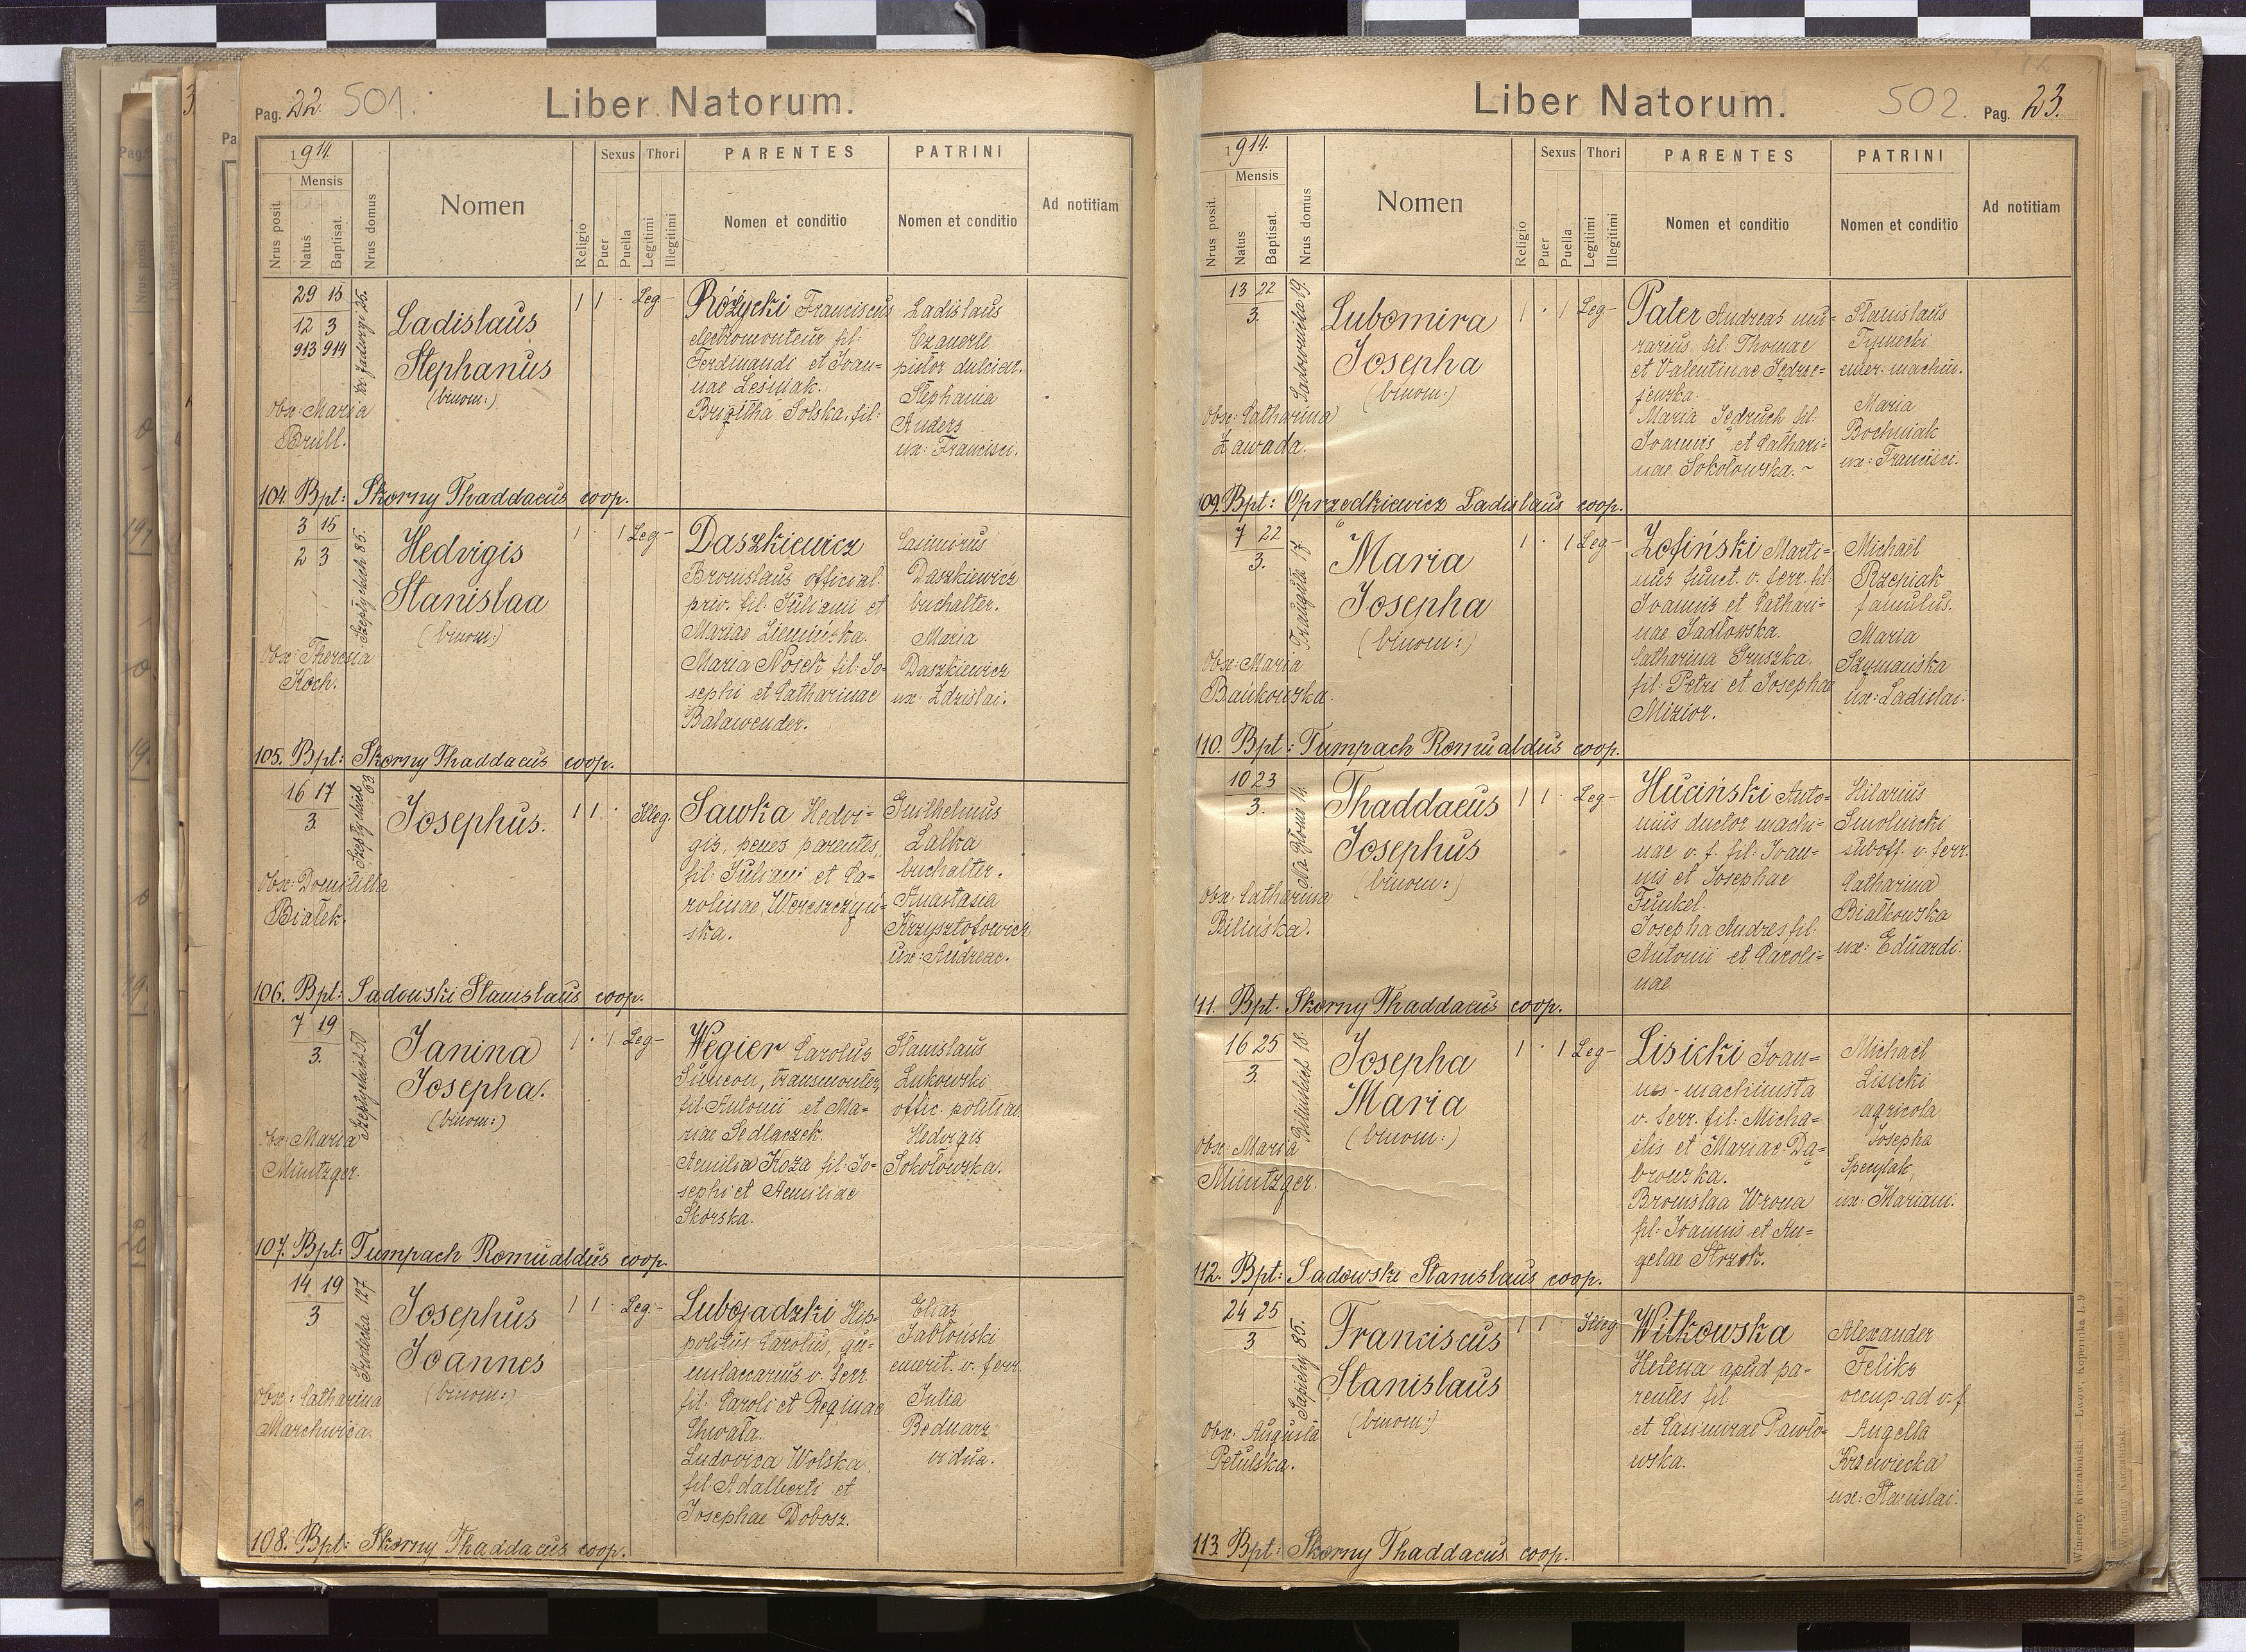 Pag. 22. 501.
Liber Natorum.
1914.
Mensis
Nrus posit.
Natus
Baptisat.
Nrus domus
Nomen
Religio
Sexus
Puer
Puella
Thori
Legitimi
Illegitimi
PARENTES
Nomen et conditio
PATRINI
Nomen et conditio
Ad notitiam
29 15
12 3
913 914
Ladislaus
Stephanus
(binom:)
Obx: Maria
Brüll.
1 1 · Leg-
Różycki Franciscus
electromonteur fil:
Ferdinandi et Joan=
nae Leśniak.
Brigitha Solska, fil:
Ladislaus
Czauerle
pistor dulciar.
Stephania
Anders
ux: Francisci.
104. Bpt: Skorny Thaddaeus coop.
3 15
2 3
Szeptyckich 85.
Hedvigis
Stanislaa
(binom:)
Obx: Theresia
Koch.
1 · 1 Leg-
Daszkiewicz
Bronislaus official.
priv. fil: Juliani et
Mariae Ziemińska.
Maria Nosek fil: Jo=
sephi et Catharinae
Balawender.
Casimirus
Daszkiewicz
buchalter.
Maria
Daszkiewicz
ux: Zdzislai.
105. Bpt: Skorny Thaddaeus coop.
16 17
3.
Szeptyckich 63
Josephus.
Obx: Domitilla
Białek.
1 1 · Illeg.
Sawka Hedvi=
gis, penes parentes,
fil: Juliani et Ca=
rolinae Wereszczyń=
ska.
Guilhelmus
Lalka
buchalter.
Anastasia
Krzysztofowicz
ux: Andreae.
106. Bpt: Sadowski Stanislaus coop.
7 19
3.
Szeptyckich 50
Janina
Josepha.
(binom:)
Obx: Maria
Müntzger
1 · 1 Leg-
Węgier Carolus
Simeon,
fil: Antonii et Ma=
riae Sedlaczek.
Aemilia Koza fil: Jo=
sephi et Aemiliae
Skórska.
Stanislaus
Lukowski
offic. politiae.
Hedvigis
Sokołowska.
107. Bpt: Tumpach Romualdus coop.
14 19
3
Grodecka 127
Josephus
Joannes
(binom:)
Obx: Catharina
Marchwica.
1 1 · Leg-
Lubojadzki Hip=
politus Carolus,
v. ferr.
fil: Caroli et Reginae
Chwała.
Ludovica Wolska,
fil: Adalberti et
Josephae Dobosz.
Elias
Jabłoński
emerit. v. ferr.
Julia
Bednarz
vidua.
108. Bpt: Skorny Thaddaeus coop.
Liber Natorum.
502. Pag. 23.
1914.
Mensis
Nrus posit.
Natus
Baptisat.
Nrus domus
Nomen
Religio
Sexus
Puer
Puella
Thori
Legitimi
Illegitimi
PARENTES
Nomen et conditio
PATRINI
Nomen et conditio
Ad notitiam
13 22
3.
Sadownicka 19.
Lubomira
Josepha
(binom:)
Obx: Catharina
Zawada.
1 · 1 Leg-
Pater Andreas mu=
rarius fil: Thomae
et Valentinae Jędrze=
jewska.
Maria Jędruch fil:
Joannis et Cathari=
nae Sokołowska. ~
Stanislaus
Tymecki
emer. machin.
Maria
Bochniak
ux: Francisci.
109. Bpt: Oprzedkiewicz Ladislaus coop.
7 22
3.
Traugutta 17.
Maria
Josepha
(binom:)
Obx: Maria
Bańkowska.
1 · 1 Leg-
Zofiński Marti=
nus funct. v. ferr. fil:
Joannis et Cathari=
nae Sadłowska.
Catharina Gruszka,
fil: Petri et Josepha
Mizior.
Michaël
Rzepiak
famulus.
Maria
Szymańska
ux: Ladislai.
110. Bpt: Tumpach Romualdus coop.
10 23
3.
Na Błonie 14.
Thaddaeus
Josephus
(binom:)
Obx: Catharina
Bilińska.
1 1 · Leg-
Huciński Anto=
nius ductor machi=
nae v. f. fil: Joan=
nis et Josephae
Funkel.
Josepha Andres fil:
Antonii et Caroli=
nae
Hilarius
Smolnicki
suboff. v. ferr.
Catharina
Białkowska
ux: Eduardi.
111. Bpt. Skorny Thaddaeus coop.
16 25
3.
Bilińskich 18.
Josepha
Maria
(binom:)
Obx: Maria
Müntzger.
1 · 1 Leg-
Lisicki Joan=
nes - machinista
v. ferr. fil: Micha=
ëlis et Mariae Dą=
browska.
Bronislaa Wrona
fil: Joannis et An=
gelae Strzok.
Michaël
Lisicki
agricola
Josepha
Spenylak,
ux: Mariani.
112. Bpt: Sadowski Stanislaus coop.
24 25
3
Sapiehy 85.
Franciscus
Stanislaus
(binom:)
Obx: Augusta
Petulska.
1 1 · Illeg
Witkowska
Helena apud pa=
rentes fil
et Casimirae Pawło=
wska.
Alexander
Feliks
occup. ad v. f.
Angella
Krzewiecka
ux: Stanislai.
113. Bpt: Skorny Thaddaeus coop.
Wincenty Kuczabiński Lwów, Kopernika l. 9